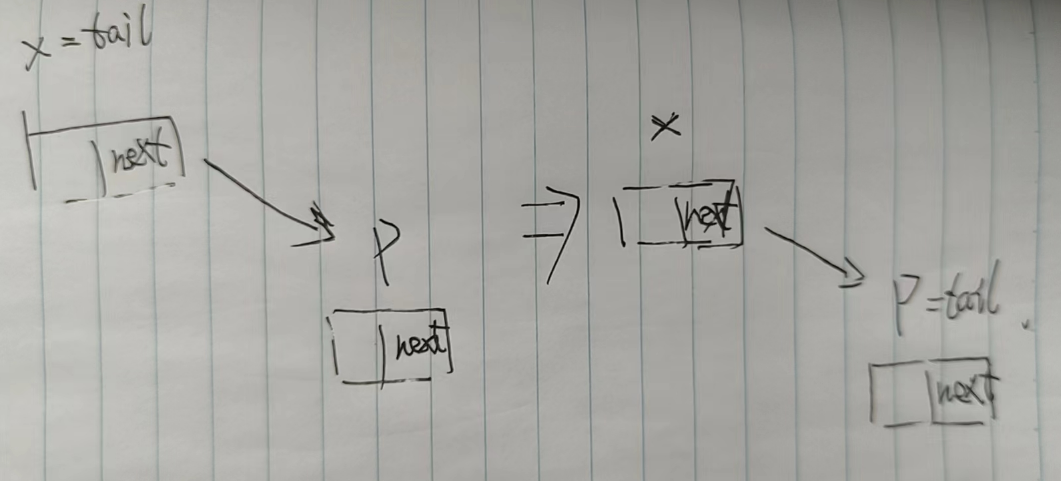 x = tail
next
P
next
⇒
x
next
P = tail.
next